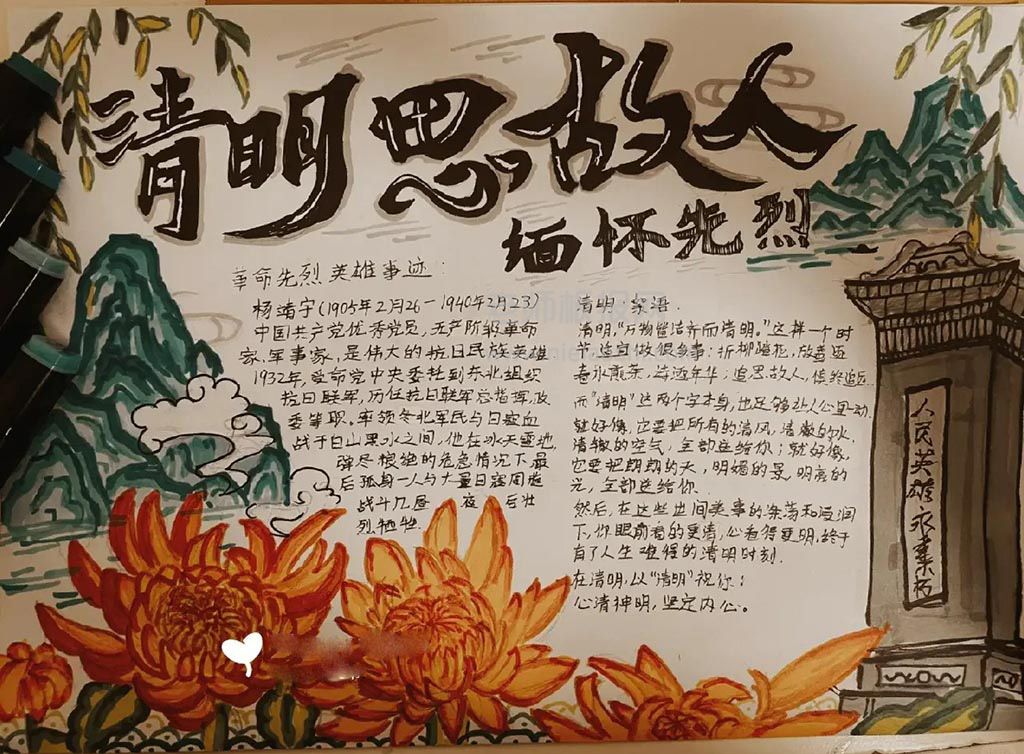 清明思故人
缅怀先烈
革命先烈英雄事迹：
杨靖宇(1905年2月26-1940年2月23)
中国共产党优秀党员，无产阶级革命
家、军事家，是伟大的抗日民族英雄
1932年，受命党中央委托到东北组织
抗日联军，历任抗日联军总指挥政
委等职。率领东北军民与日寇血
战于白山黑水之间，他在冰天雪地
弹尽粮绝的危急情况下最
后孤身一人与大量日寇周旋
战斗几昼夜后壮
烈牺牲.
清明·寄语
清明，"万物皆洁齐而清明。"这样一个时
节，适宜做很多事：折柳踏花，放
春水煎茶，年华；追思故人，慎终追远
而"清明"这两个字本身，也足够让人心里一动.
就好像，它要把所有的清风，清澈的水，
清辙的空气，全部送给你；就好像，
它要把朗朗的天，明媚的景，明亮的
光，全部送给你.
然后，在这些世间美事的涤荡和浸润
下，你眼前看的更清，心看得更明，终于
有了人生难得的清明时刻.
在清明，以"清明"祝你：
心清神明，坚定内心。
人民英雄永垂朽